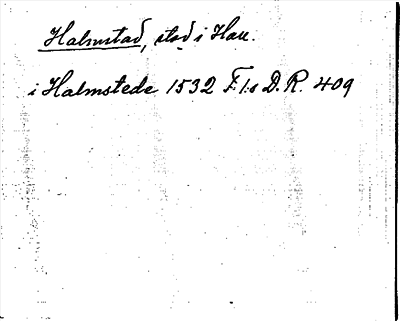 Halmstad, stad i Hall.
i Halmstede 1532 F. 1:s D.R. 409